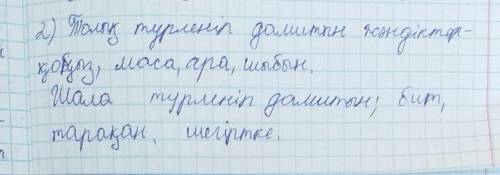 2) Толық түрленіп дамитын жәндіктер-
қоңыз, маса, ара, шыбын.
Шала түрленіп дамитын; бит,
тарақан, шегіртке.